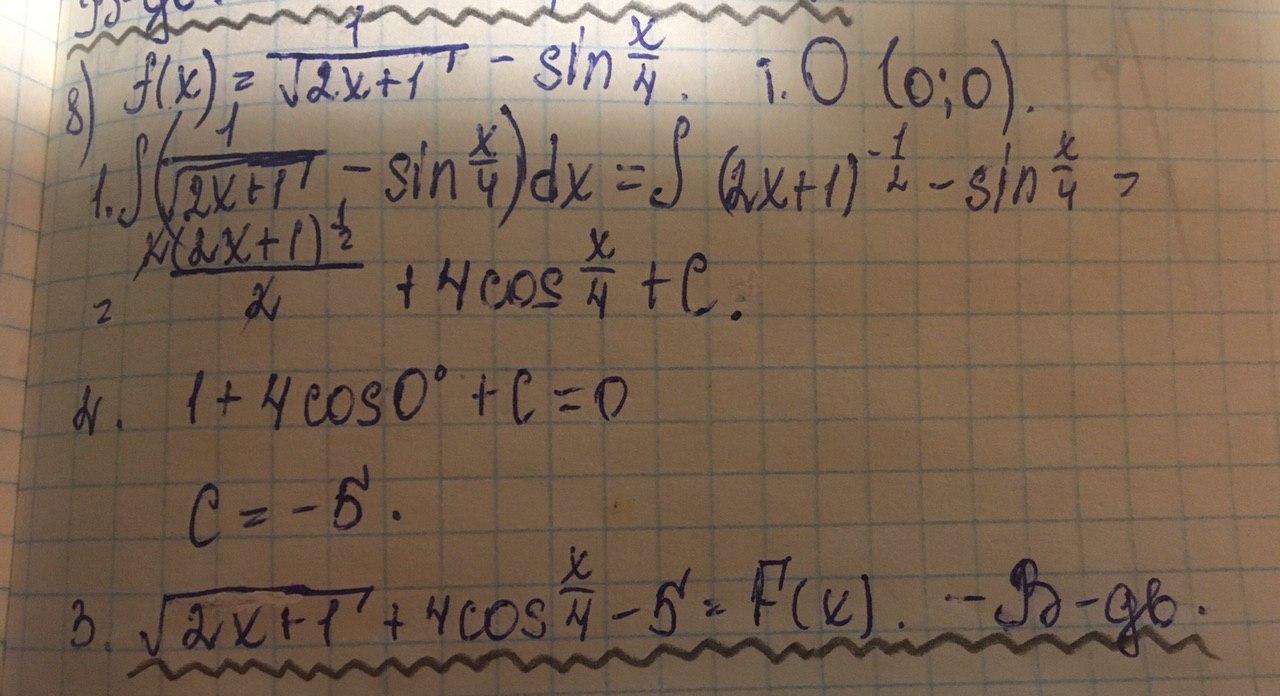 8) f(x) = 1/√(2x+1) - sin x/4. т. О (0;0).
1. ∫(1/√(2x+1) - sin x/4)dx = ∫ (2x+1)^(-1/2) - sin x/4 =
= 2(2x+1)^(1/2)/2 + 4cos x/4 + C.
2. 1 + 4cos0° + C = 0
C = -5.
3. √(2x+1) + 4cos x/4 - 5 = F(x). - В-дь.